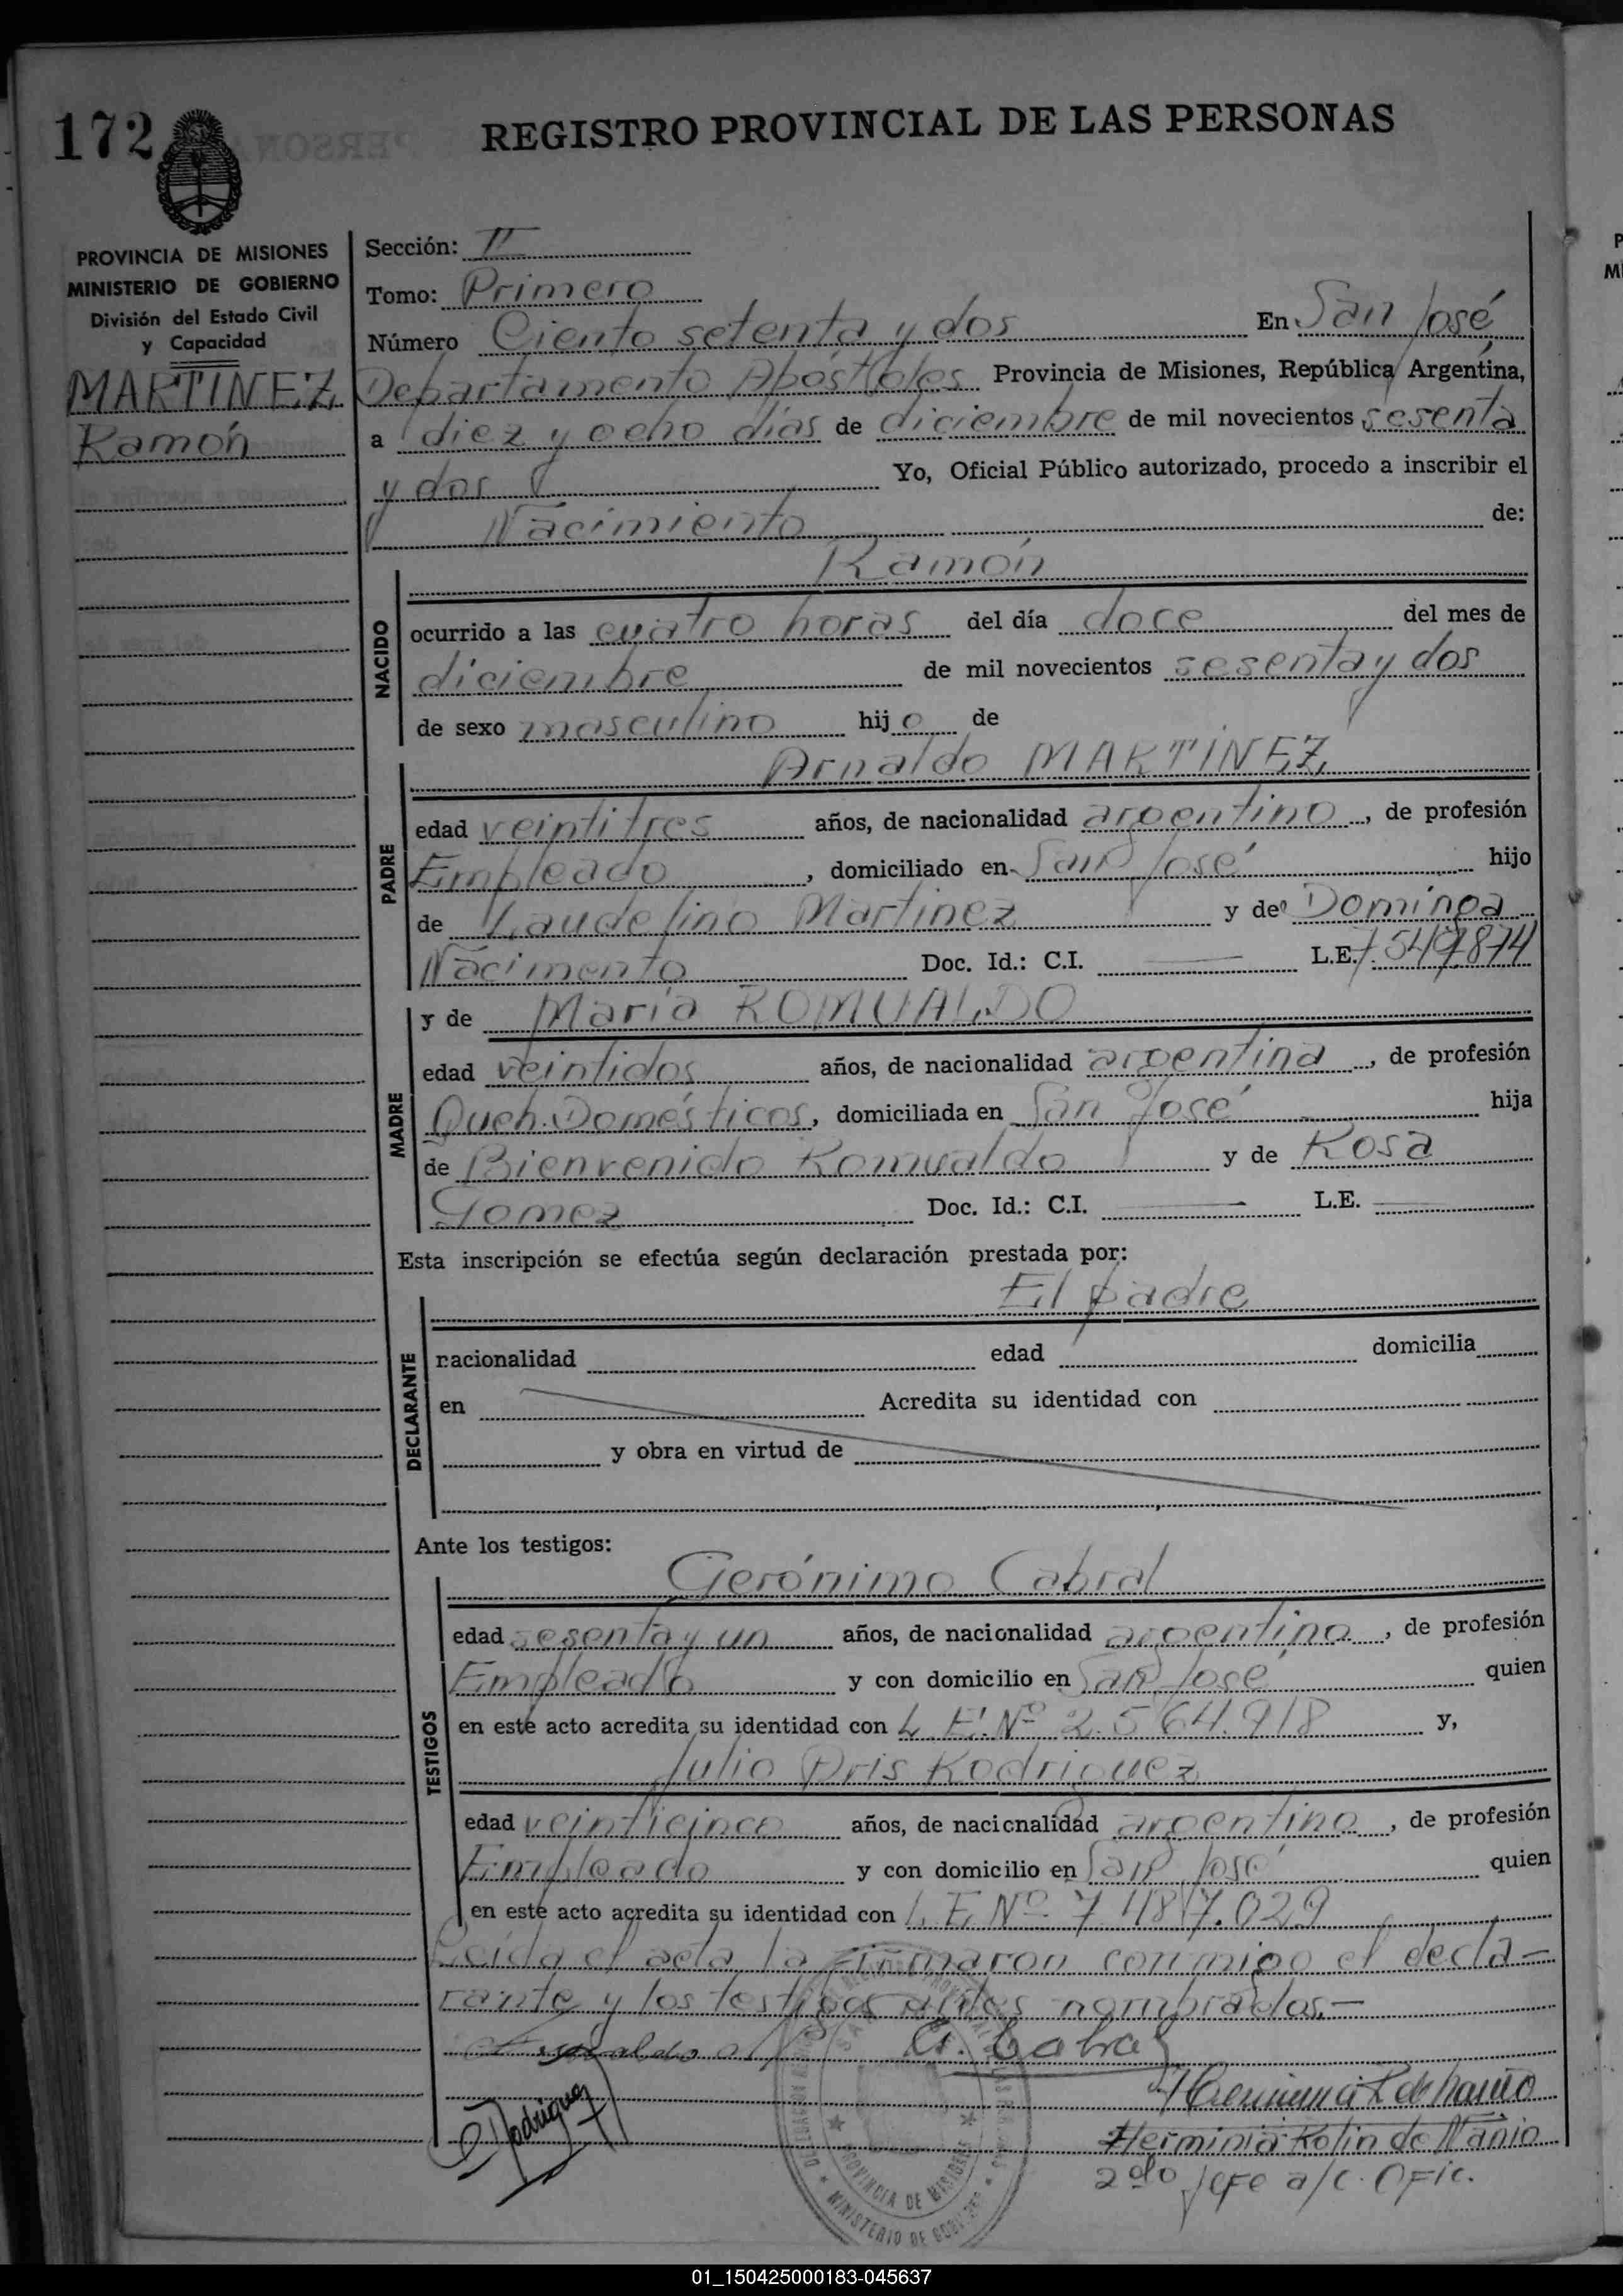 172
REGISTRO PROVINCIAL DE LAS PERSONAS
PROVINCIA DE MISIONES
MINISTERIO DE GOBIERNO
División del Estado Civil
y Capacidad
MARTINEZ
Ramón
Sección: II
Tomo: Primero
Número Ciento setenta y dos En San José
Departamento Apóstoles Provincia de Misiones, República Argentina,
a diez y ocho días de diciembre de mil novecientos sesenta
y dos Yo, Oficial Público autorizado, procedo a inscribir el
Nacimiento de:
Ramón
NACIDO
ocurrido a las cuatro horas del día doce del mes de
diciembre de mil novecientos sesenta y dos
de sexo masculino hijo de
Arnaldo MARTINEZ
PADRE
edad veintitres años, de nacionalidad argentino, de profesión
Empleado, domiciliado en San José hijo
de Laudelino Martinez y de Dominga
Nacimento Doc. Id.: C.I. L.E. 7.549.874
MADRE
y de María ROMUALDO
edad veintidos años, de nacionalidad argentina, de profesión
Queh. Domésticos, domiciliada en San José hija
de Bienvenido Romualdo y de Rosa
Gomez Doc. Id.: C.I. L.E.
Esta inscripción se efectúa según declaración prestada por:
El padre
DECLARANTE
nacionalidad edad domicilia
en Acredita su identidad con
y obra en virtud de
Ante los testigos:
Gerónimo Cabral
TESTIGOS
edad sesenta y un años, de nacionalidad argentino, de profesión
Empleado y con domicilio en San José quien
en este acto acredita su identidad con L.E. Nº 2.564.918 y,
Julio Rodriguez
edad veinticinco años, de nacicnalidad argentino, de profesión
Empleado y con domicilio en San José quien
en este acto acredita su identidad con L.E. Nº 7.487.029
Leída el acta la firmaron conmigo el decla-
rante y los testigos antes nombrados.-
G. Cabral
Rodriguez
Herminia de Nanio
2do Jefe a/c. Ofic.
PROVINCIA DE MISIONES
MINISTERIO DE GOBIERNO
01_150425000183-045637